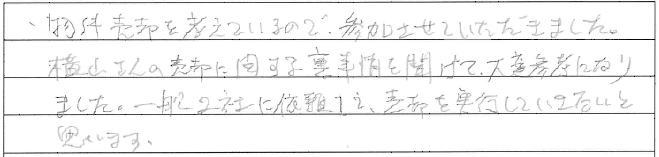 ・物件売却を考えているので、参加させていただきました。
横山さんの売却に関する裏事情を聞けて、大変参考になり
ました。一般2社に依頼して、売却を実行していきたいと
思います。